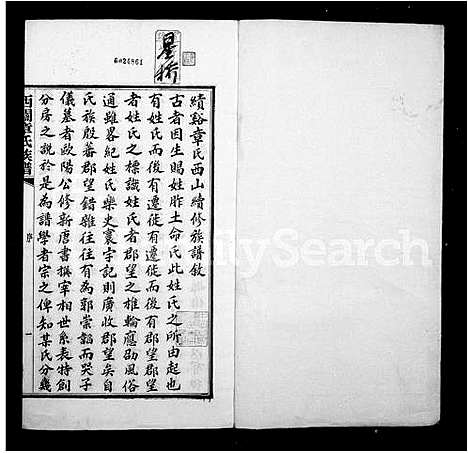 續谿章氏西山續修族譜敘
古者因生賜姓胙土命氏此姓氏之所由起也
有姓氏而後有遷徙而後有郡望郡望
者姓氏之標識姓氏者郡望之椎輪應劭風俗
通雖畧紀姓氏樂史寰宇記則廣收郡望矣自
氏族殷蕃郡望錯雜往往有為郭崇韜而哭子
儀墓者歐陽公修新唐書撰宰相世系表特創
分房之說於是為譜學者宗之俾知某氏分幾
章氏族譜
序
一